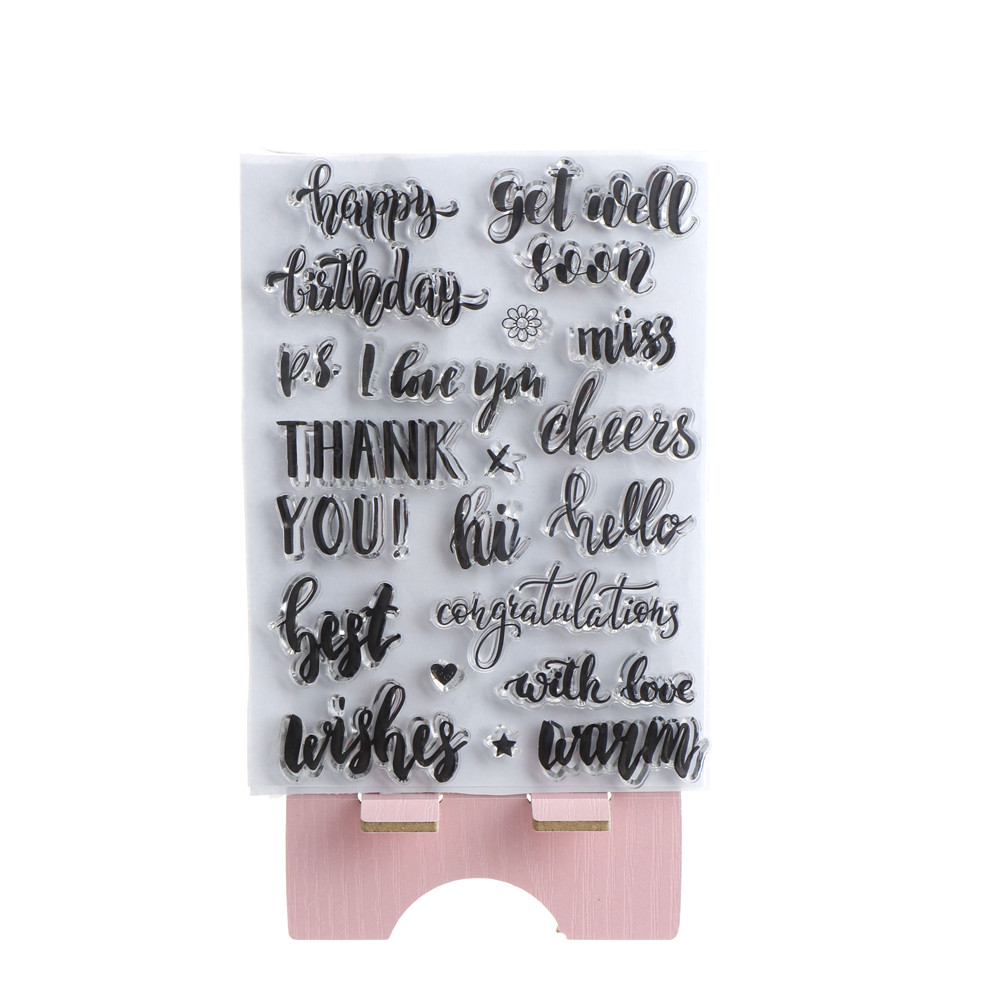 happy
birthday
get well
soon
miss
p.s. I love you
cheers
THANK
YOU!
x
hi
hello
best
wishes
congratulations
with love
warm